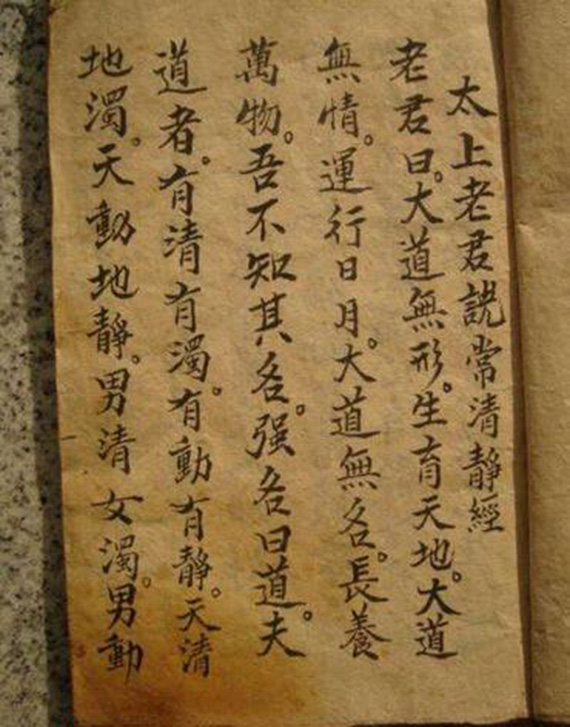 太上老君說常清靜經
老君曰。大道無形。生育天地。大道
無情。運行日月。大道無名。長養
萬物。吾不知其名。强名曰道。夫
道者。有清有濁。有動有靜。天清
地濁。天動地靜。男清女濁。男動